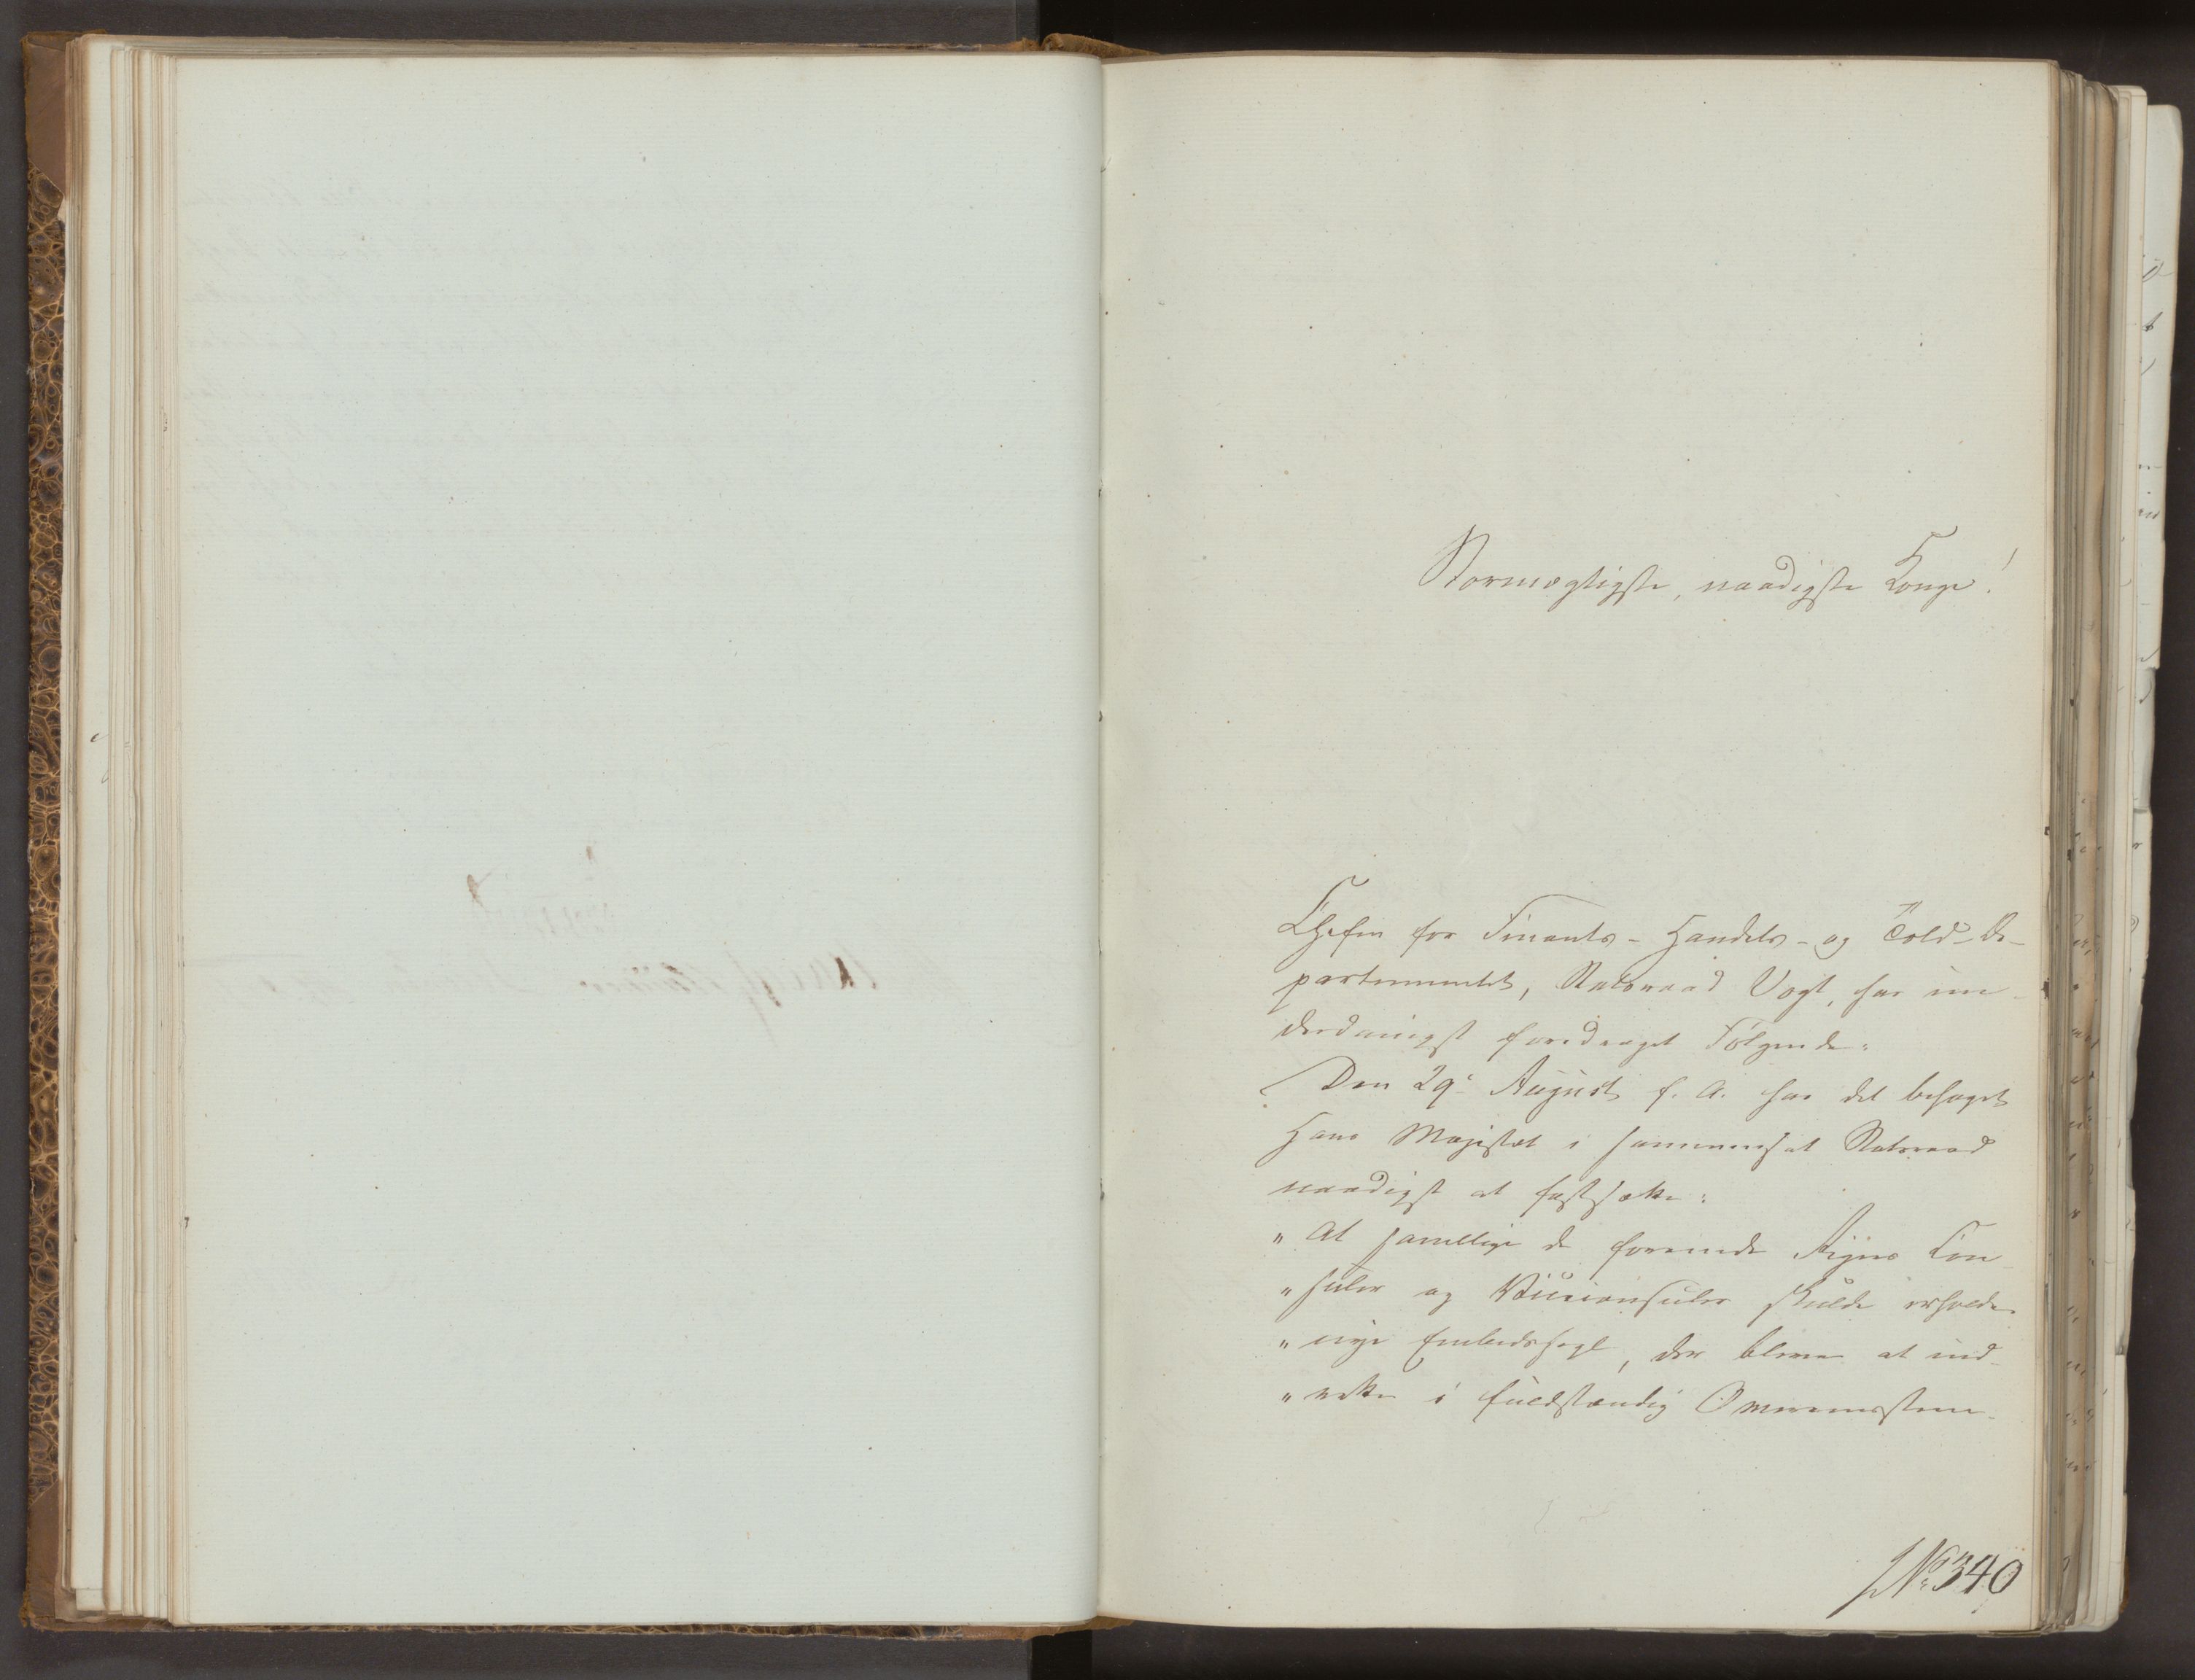 Stormægtigste, naadigste Konge!
Chefen for Finants- Handels- og Told-De-
partementet, Statsraad Vogt, har un-
derdanigst foredraget Følgende:
Den 29de August f. A. har det behaget
Hans Majestæt i sammensat Statsraad
naadigst at fastsætte:
" At samtlige de forenede Rigers Con-
" suler og Viceconsuler skulde erholde
" nye Embedssegl, der bleve at ind-
" rette i fuldstændig Overeensstem-
No 340